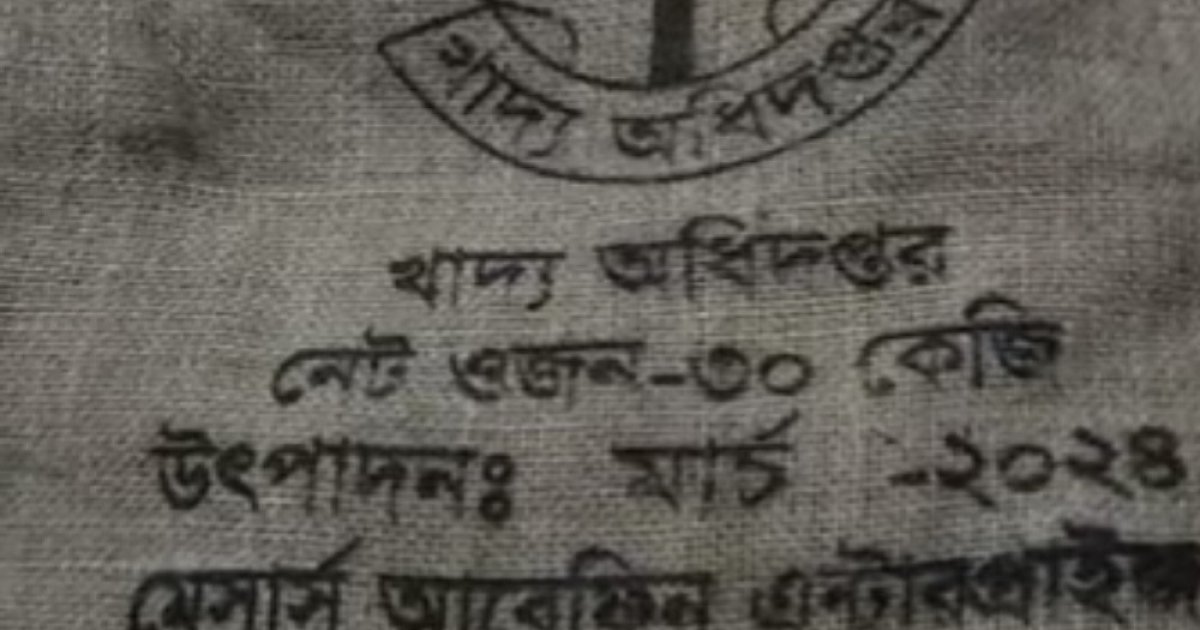 খাদ্য অধিদপ্তর
খাদ্য অধিদপ্তর
নেট ওজন-৩০ কেজি
উৎপাদনঃ মার্চ -২০২৪
মেসার্স আরেফিন এন্টারপ্রাইজ